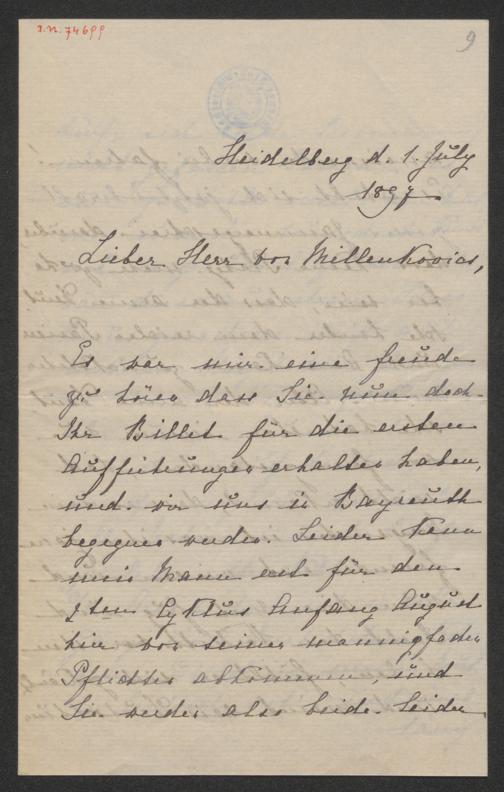 I.N. 74699
9
Heidelberg d. 1. July
1897
Lieber Herr von Millenkovics,
Es war mir eine freude
zu hören dass Sie nun doch
Ihr Billet für die ersten
Aufführungen erhalten haben,
und wir uns in Bayreuth
begegnen werden. Leider kann
mein Mann erst für den
2ten Cyklus Anfang August
hier von seinen mannigfachen
Pflichten abkommen, und
Sie werden also beide leider